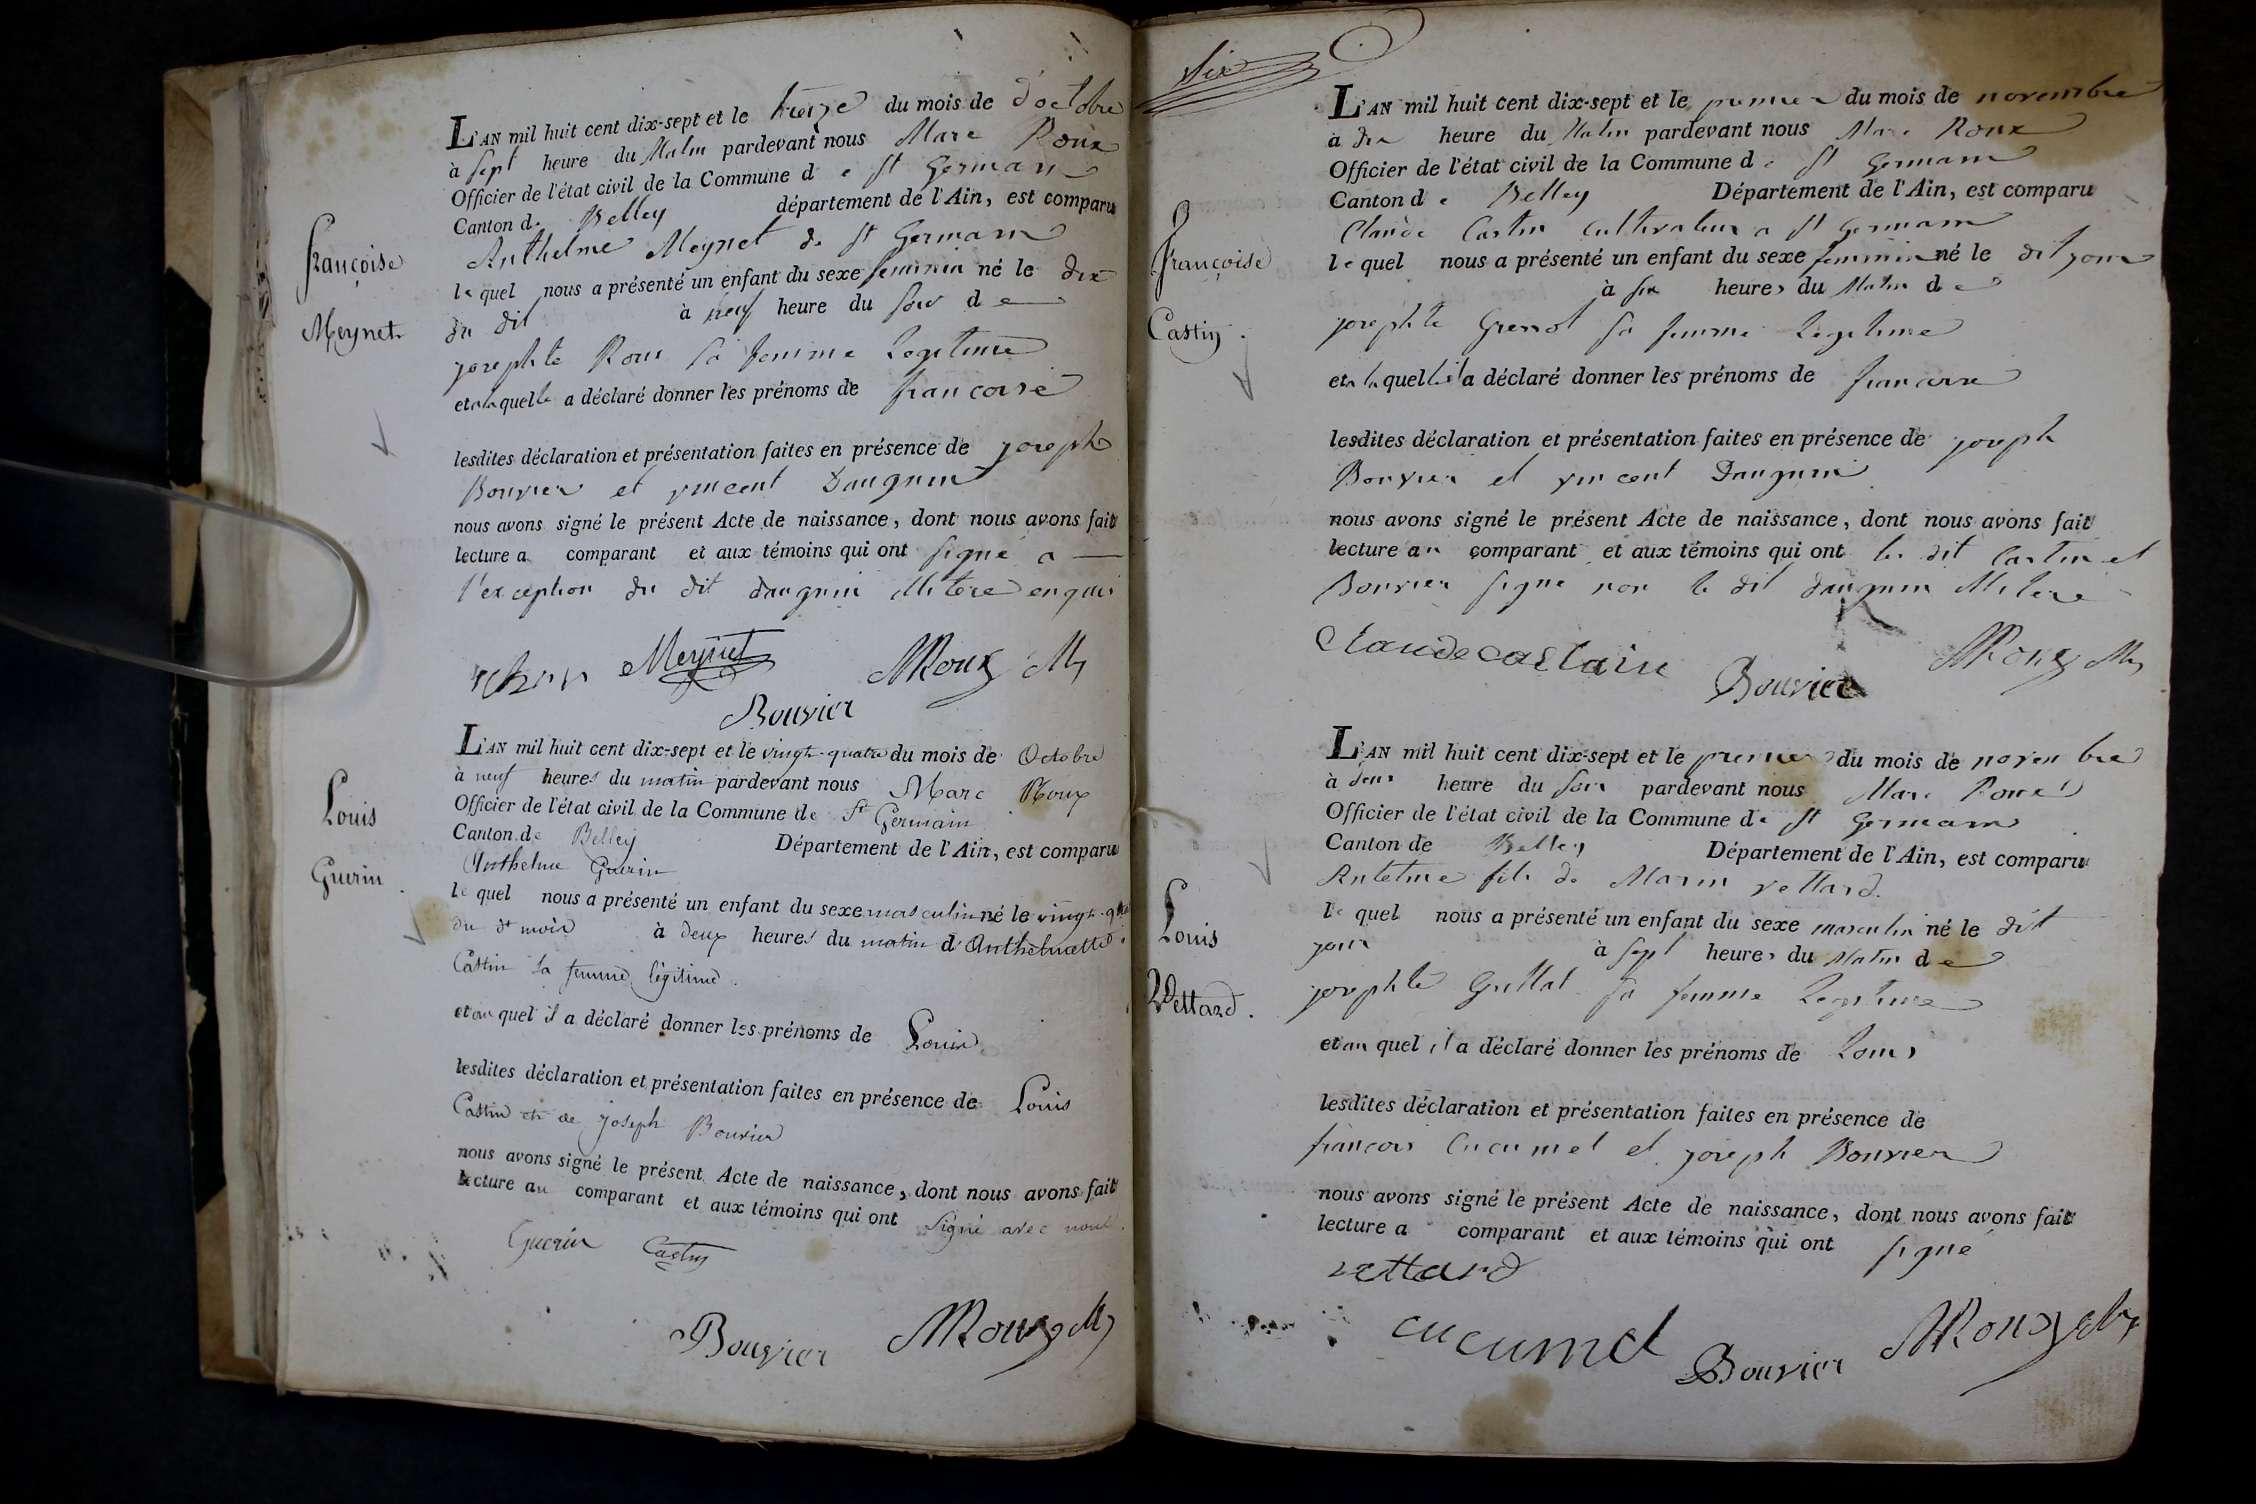 L'AN mil huit cent dix-sept et le treize du mois de d'octobre
à sept heure du Matin pardevant nous Marc Roux
Officier de l'état civil de la Commune de St Germain
Canton de Belley département de l'Ain, est comparu
Anthelme Meynet de St Germain
lequel nous a présenté un enfant du sexe feminin né le dix
du dit à neuf heure du soir de
josephte Roux sa femme Legitime
et a laquelle a déclaré donner les prénoms de francoise
lesdites déclaration et présentation faites en présence de joseph
Bouvier et vincent Dauguin
nous avons signé le présent Acte de naissance, dont nous avons fait
lecture a comparant et aux témoins qui ont signé a
l'exception du dit dauguin illitere enquis
Meynet MRoux M
Bouvier
Françoise
Meynet
L'AN mil huit cent dix-sept et le vingt-quatre du mois de Octobre
à neuf heures du matin pardevant nous Marc Roux
Officier de l'état civil de la Commune de St Germain
Canton de Belley Département de l'Ain, est comparu
Anthelme Guerin
lequel nous a présenté un enfant du sexe masculin né le vingt-
du dt mois à deux heures du matin d'Anthelmette
Castin sa femme légitime.
et auquel il a déclaré donner les prénoms de Louis
lesdites déclaration et présentation faites en présence de Louis
Castin et de joseph Bouvier
nous avons signé le présent Acte de naissance, dont nous avons fait
lecture au comparant et aux témoins qui ont signé avec nous.
Guerin Castin
Bouvier MRoux M
Louis
Guerin
dix
L'AN mil huit cent dix-sept et le premier du mois de novembre
à dix heure du Matin pardevant nous Marc Roux
Officier de l'état civil de la Commune de St Germain
Canton de Belley Département de l'Ain, est comparu
Claude Castin cultivateur a St Germain
lequel nous a présenté un enfant du sexe feminin né le dit jour
à six heures du Matin de
josephte sa femme Legitime
et a laquelle il a déclaré donner les prénoms de francoise
lesdites déclaration et présentation faites en présence de joseph
Bouvier et vincent Dauguin
nous avons signé le présent Acte de naissance, dont nous avons fait
lecture au comparant et aux témoins qui ont les dit Castin et
Bouvier signe non le dit dauguin illitere
Claude castain Bouvier MRoux M
Françoise
Castin.
L'AN mil huit cent dix-sept et le premier du mois de novembre
à deux heure du soir pardevant nous Marc Roux
Officier de l'état civil de la Commune de St Germain
Canton de Belley Département de l'Ain, est comparu
Antelme fils de Marin vettard.
lequel nous a présenté un enfant du sexe masculin né le dit
jour à sept heures du Matin de
josephte Grillat sa femme Legitime
et au quel il a déclaré donner les prénoms de Louis
lesdites déclaration et présentation faites en présence de
francois Cucumel et joseph Bouvier
nous avons signé le présent Acte de naissance, dont nous avons fait
lecture a comparant et aux témoins qui ont signé
vettard
cucumel Bouvier MRoux M
Louis
Vettard.